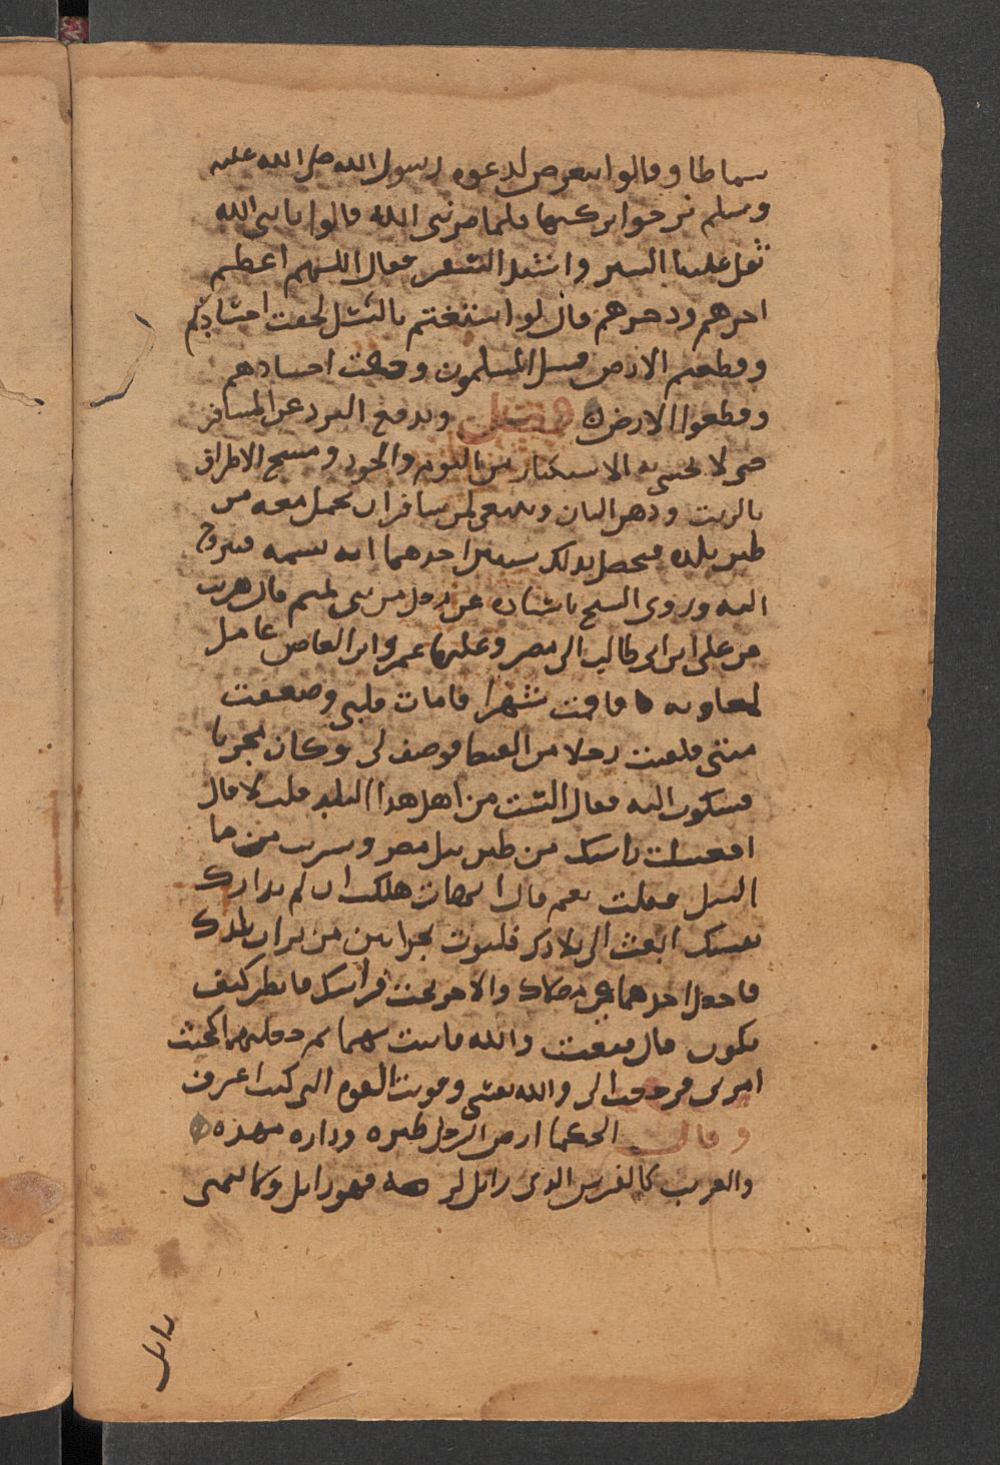 سماطا وقالوا نتعرض لدعوه رسول الله صلى الله عليه
وسلم نرجوا بركتها فلما مر نبى الله قالوا يا نبى الله
ثقل علينا السير واشتد السفر فقال اللهم اعظم
اجرهم ودخرهم قال لو استغثتم بالنسل لخفت اجسادكم
وقطعتم الارض ففعل المسلمون وخفت اجسادهم
وقطعوا الارض فصل ويدفع البرد عن المسافر
حتى لا يحس به الاستكثار من الثوم والجوز ومسح الاطراف
بالزيت ودهن البان وينبغى لمن سافر ان يحمل معه من
طين بلده فيحصل بذلك شيئين احدهما انه يشمه فيروح
اليه وروى الشيخ باسناده عن رجل من بنى تميم قال هربت
من على ابن ابى طالب الى مصر وعليها عمرو ابن العاص عامل
لمعاويه فاقمت شهرا فامات قلبى وضعفت
منتى فلقيت رجلا من القبط فوصف لى وكان مجربا
فشكوت اليه فقال الست من اهل هذا البلد قلت لا قال
افغسلت راسك من طين نيل مصر وشربت من ما
النيل فقلت نعم قال هلكت ان لم تدارك
نفسك ابعث الى بلادك فليوت بجرابين من تراب بلدك
فاجعل احدهما عن والاخر تحت فراشك فانظر كيف
تكون قال فبعثت والله فاتيت بهما ثم جعلتهما كحيث
امرنى فرجعت الى والله نفسى وقويت القوه التى كنت اعرف
وقال الحكما ارض الرجل ظيره وداره مهده
والغريب كالغرس الذى زايل ارضه فهو ذابل وكالنبى
زايل